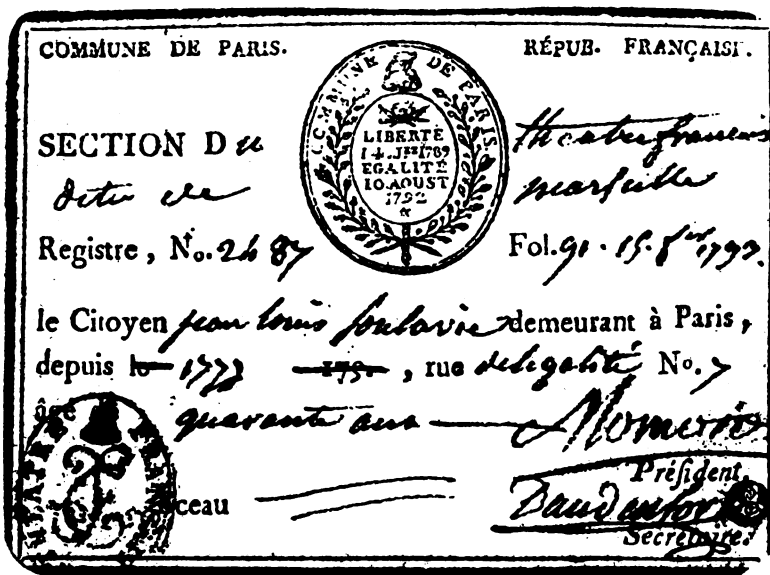 COMMUNE DE PARIS.
RÉPUB. FRANÇAISE.
COMMUNE DE PARIS.
LIBERTÉ
14. Jet 1789
EGALITÉ
10. AOUST
1792
SECTION Du théatre francais
dite de marseille
Registre, No. 2487 Fol. 91. 15. 8bre 1792.
le Citoyen jean louis soulavie demeurant à Paris,
depuis le 1773, rue de legalité No. 7
âge quarante ans Momoro
Préſident,
ceau
Secrétaire.